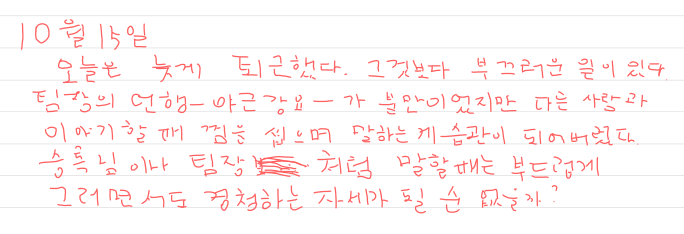 10월 15일
오늘은 늦게 퇴근했다. 그것보다 부끄러운 일이 있다
팀장의 언행-야근강요-가 불만이었지만 다른 사람과
이야기할 때 껌을 씹으며 말하는게 습관이 되어버렸다.
승특님이나 팀장 처럼 말할때는 부드럽게
그러면서도 경청하는 자세가 될 순 없을까?